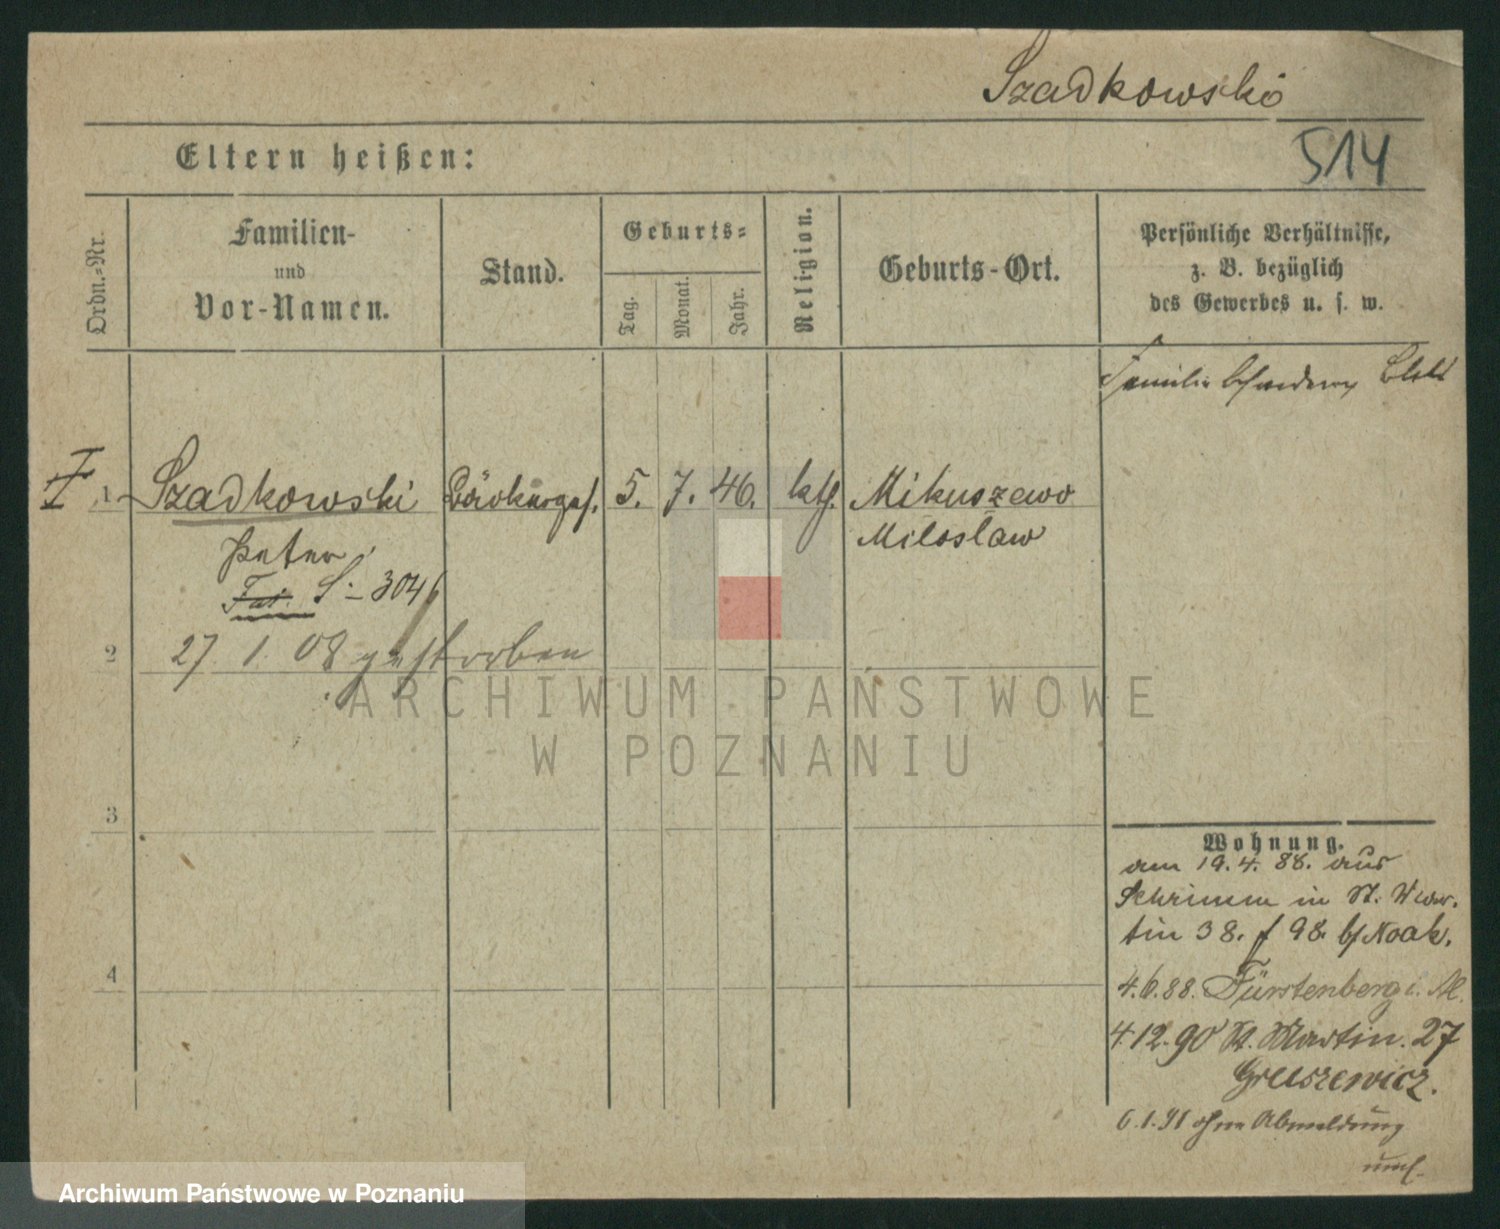 Szadkowski
514
Eltern heißen:
Ordn.-Nr.
Familien-
und
Vor-Namen.
Stand.
Geburts-
Tag.
Monat.
Jahr.
Religion.
Geburts-Ort.
Persönliche Verhältnisse,
z. B. bezüglich
des Gewerbes u. s. w.
Familie besonderes Blatt
1 Szadkowski Bäckerges. 5. 7. 46. kth. Mikuszewo
Miloslaw
Peter
S. 3046
2
27. 1. 08 gestorben
3
4
Wohnung.
am 19. 4. 88. aus
Schrimm in St. Mar-
tin 38. 98. b/ Noak.
4.6.88. Fürstenberg i. M.
4 12. 90 St. Martin. 27
Gruszewicz.
6.1.91 ohne Abmeldung
ARCHIWUM PAŃSTWOWE
W POZNANIU
Archiwum Państwowe w Poznaniu